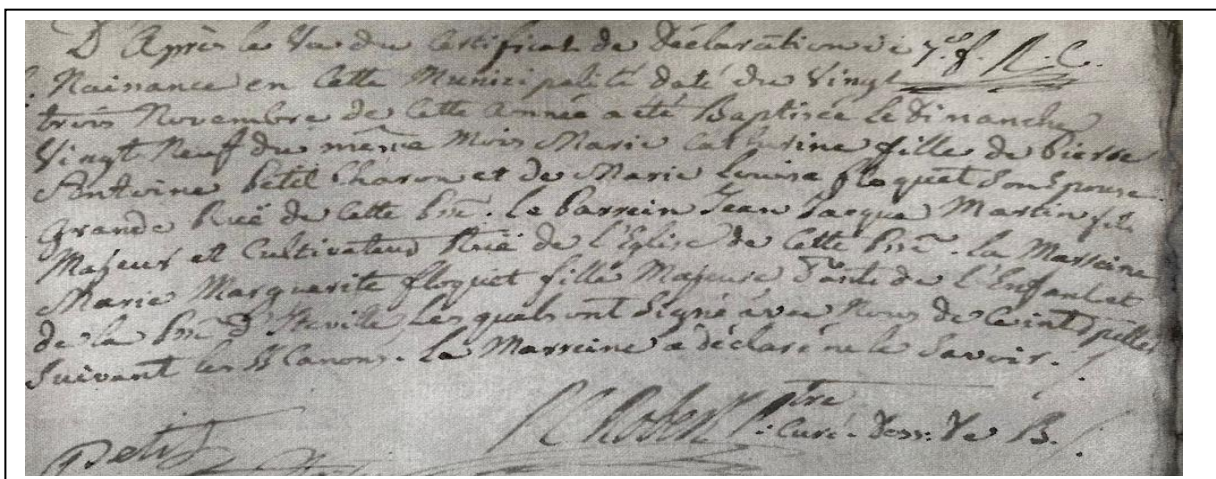 D'Après la Vu du Certificat de Déclaration de
Naissance en Cette Municipalité daté du Vingt
trois Novembre de Cette Année a été Baptisée le Dimanche
Vingt Neuf du même Mois Marie Catherine fille de Pierre
Antoine Petit Charon et de Marie Louise floquet Son Epouse
grande Ruë de Cette Psse. Le Parrein Jean Jacque Martin fils
Majeur et Cultivateur Ruë de l'Eglise de Cette Psse. la Marreine
Marie Marguerite floquet fille Majeure Tante de l'Enfant et
de la Psse Lesquels ont Signé avec Nous de Ce interpellés
Suivant les Sts Canons. La Marreine a déclaré ne le Savoir.
Ptre
Petit
Curé. B.